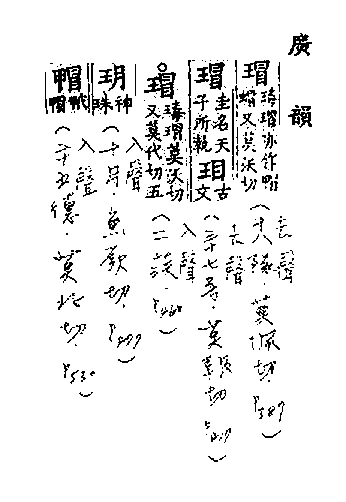 廣韻
瑁 瑇瑁亦作蝐
蝐又莫沃切
去聲(十八隊.莫佩切.P389)
瑁 圭名天
子所執 玥 古文
去聲(三十七号.莫報切.P417)
瑁 瑇瑁莫沃切
又莫代切五
入聲(二沃.P460)
玥 神珠
入聲(十月.魚厥切.P477)
入聲(二十五德.莫北切.P530)